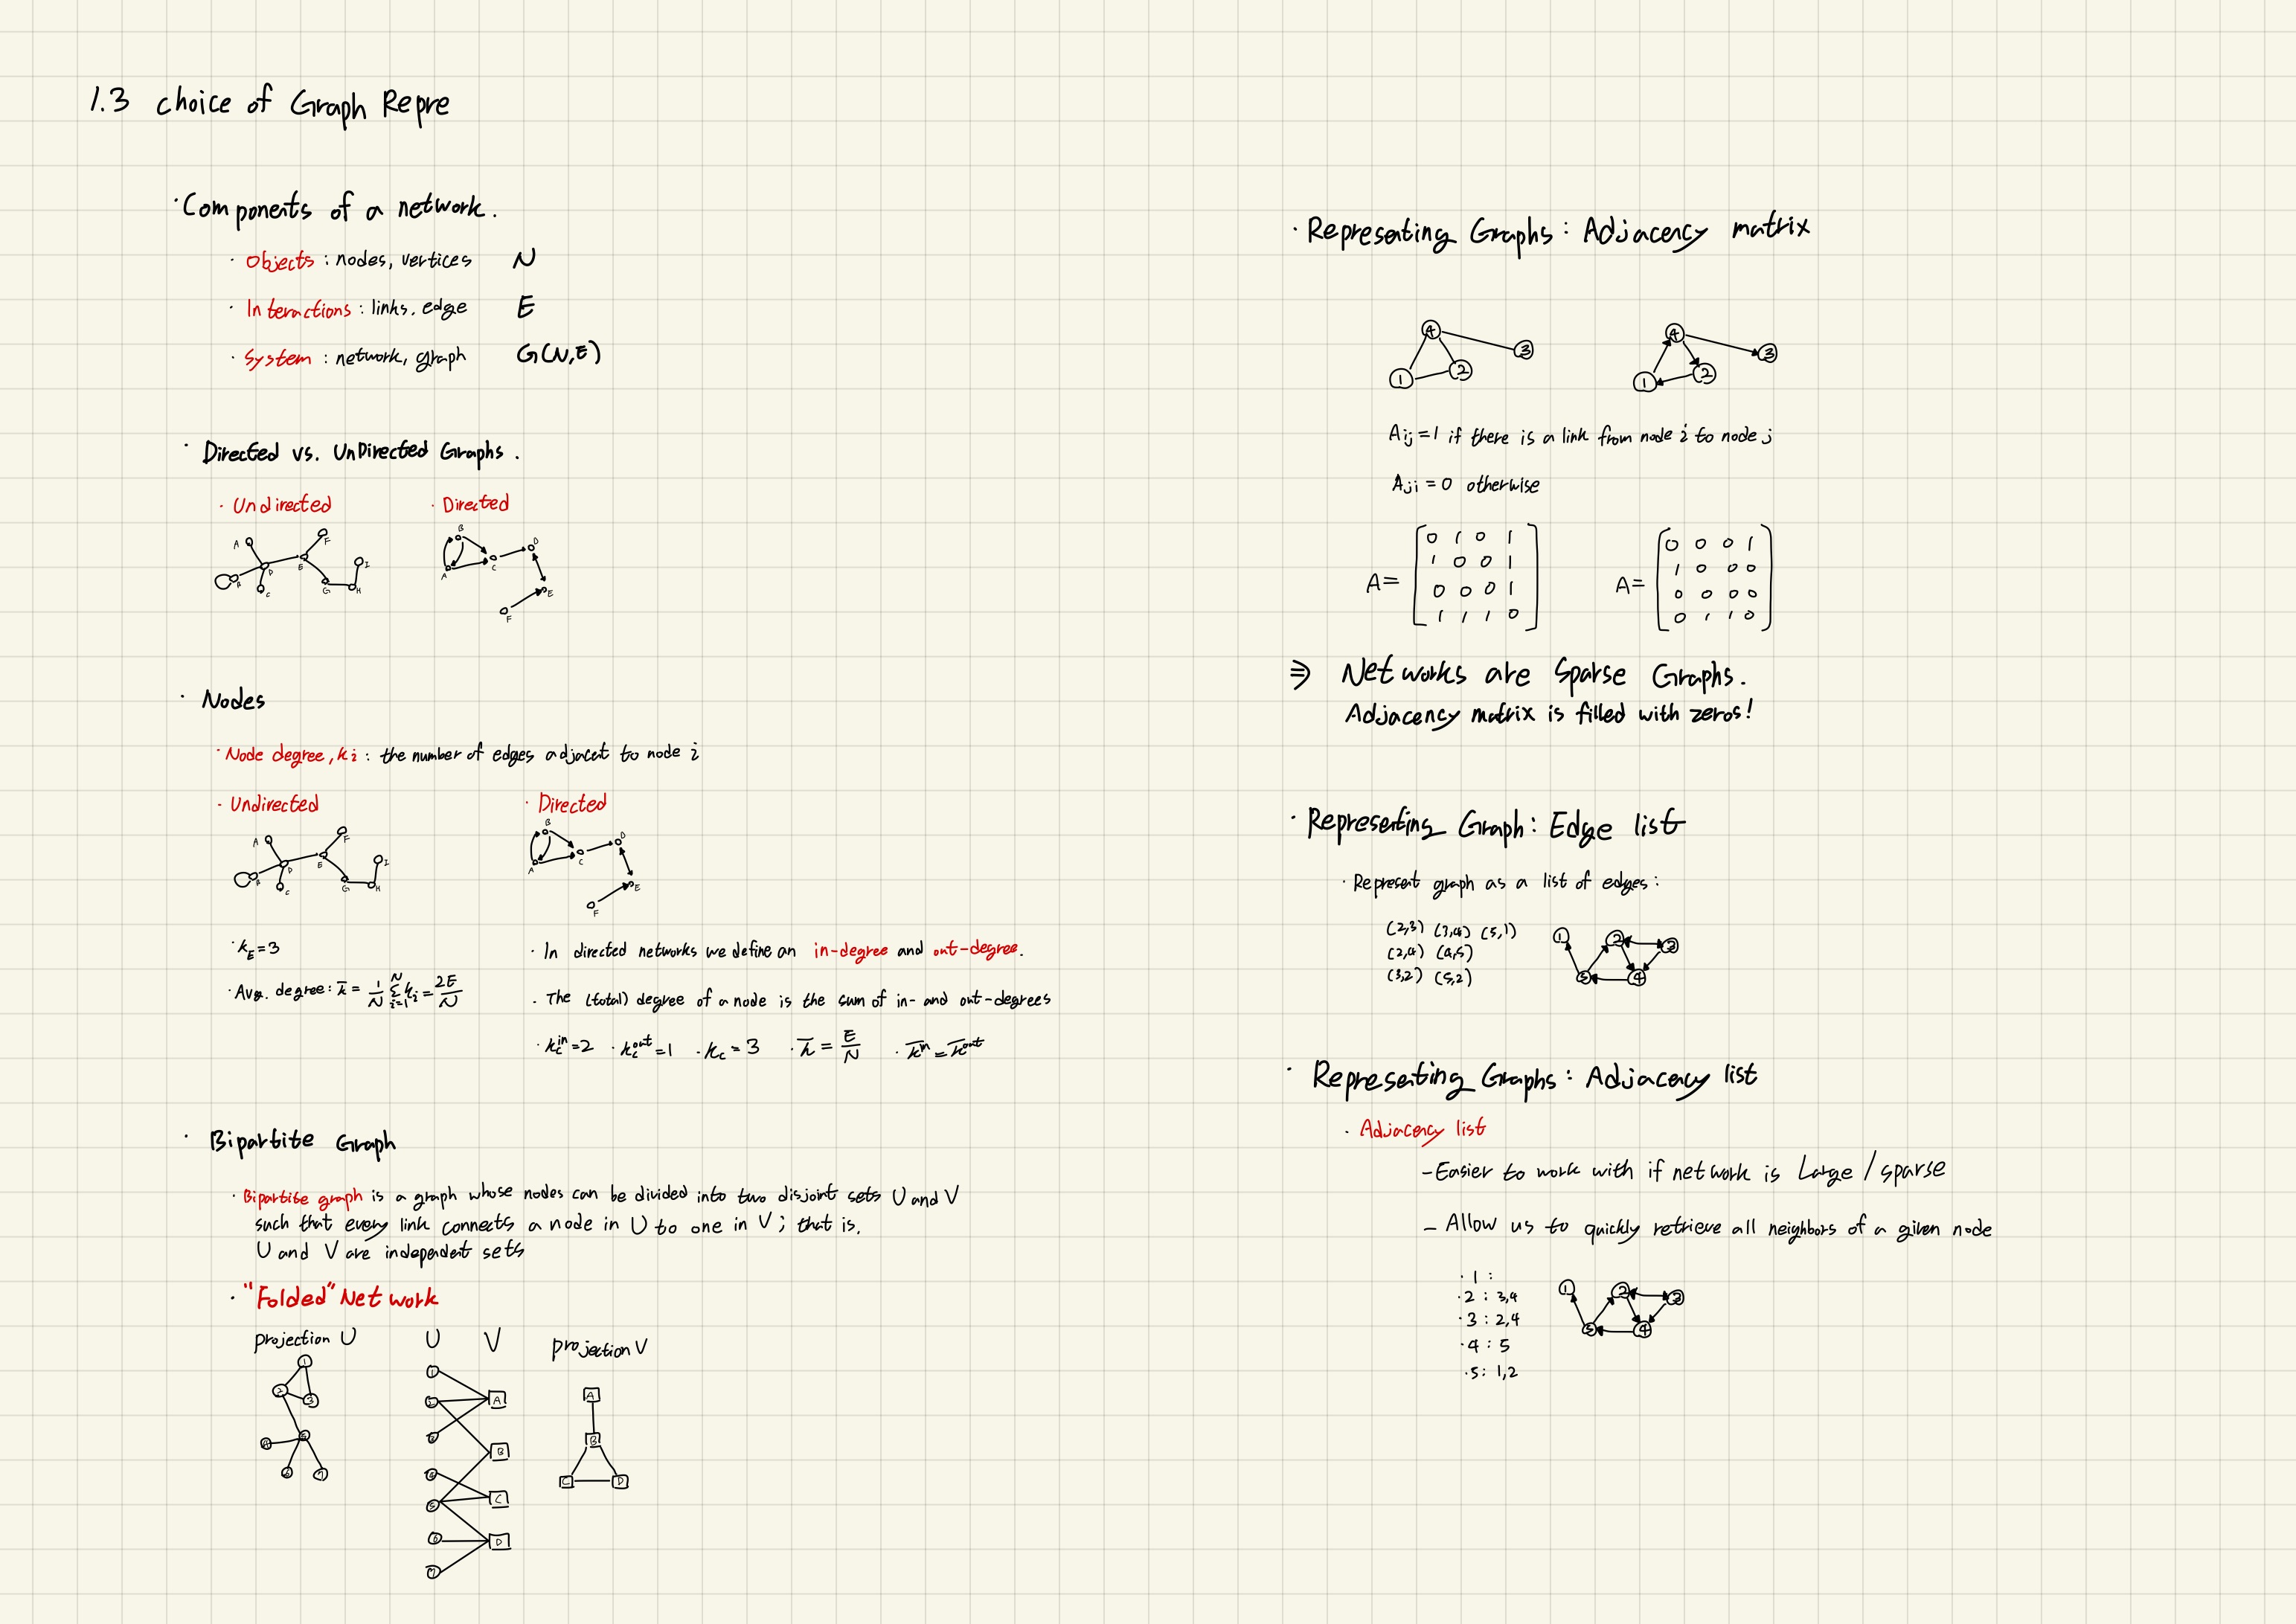 1.3 choice of Graph Repre
· Components of a network.
· Objects : nodes, vertices N
· Interactions : links, edge E
· System : network, graph G(N,E)
· Directed vs. UnDirected Graphs.
· Undirected · Directed
A F B D
I
B D E C
C G H A E
F
· Nodes
· Node degree, ki : the number of edges adjacent to node i
· Undirected · Directed
A F B D
I
B D E C
C G H A E
F
· kE = 3
· Avg. degree : k̄ = 1/N Σ(i=1 to N) ki = 2E/N
· In directed networks we define an in-degree and out-degree.
· The (total) degree of a node is the sum of in- and out-degrees
· kc^in = 2 · kc^out = 1 · kc = 3 · k̄ = E/N · k̄^in = k̄^out
· Bipartite Graph
· Bipartite graph is a graph whose nodes can be divided into two disjoint sets U and V
such that every link connects a node in U to one in V ; that is.
U and V are independent sets
· "Folded" Network
projection U U V projection V
1 2 3 5 4 6 7
1 2 3 4 5 6 7
A B C D
A B C D
· Representing Graphs : Adjacency matrix
4 3 1 2
4 3 1 2
Aij = 1 if there is a link from node i to node j
Aji = 0 otherwise
A = [
0 1 0 1
1 0 0 1
0 0 0 1
1 1 1 0
]
A = [
0 0 0 1
1 0 0 0
0 0 0 0
0 1 1 0
]
⇒ Networks are Sparse Graphs.
Adjacency matrix is filled with zeros!
· Representing Graph : Edge list
· Represent graph as a list of edges :
(2,3) (3,4) (5,1)
(2,4) (4,5)
(3,2) (5,2)
1 2 3 5 4
· Representing Graphs : Adjacency list
· Adjacency list
- Easier to work with if network is Large / sparse
- Allow us to quickly retrieve all neighbors of a given node
· 1 :
· 2 : 3,4
· 3 : 2,4
· 4 : 5
· 5 : 1,2
1 2 3 5 4